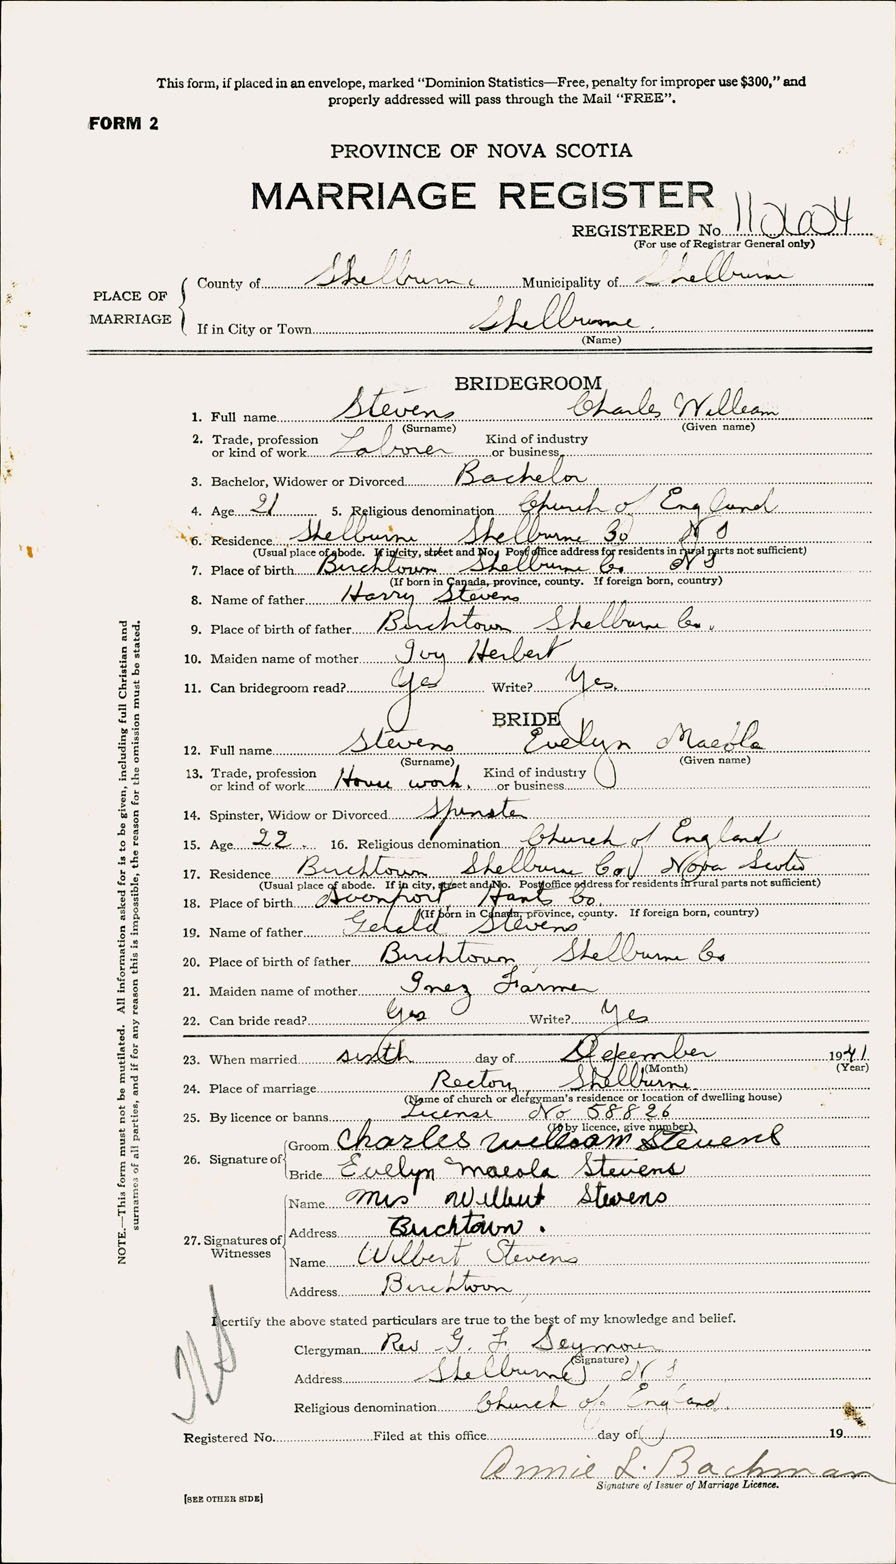 This form, if placed in an envelope, marked "Dominion Statistics—Free, penalty for improper use $300," and
properly addressed will pass through the Mail "FREE".
FORM 2
PROVINCE OF NOVA SCOTIA
MARRIAGE REGISTER
REGISTERED No.
(For use of Registrar General only)
PLACE OF MARRIAGE
County of Shelburne Municipality of Shelburne
If in City or Town Shelburne.
(Name)
BRIDEGROOM
1. Full name Stevens Charles William
(Surname) (Given name)
2. Trade, profession or kind of work Laborer Kind of industry or business
3. Bachelor, Widower or Divorced Bachelor
4. Age 21 5. Religious denomination Church of England
6. Residence Shelburne Shelburne Co N S
(Usual place of abode. If in city, street and No. Post office address for residents in rural parts not sufficient)
7. Place of birth Birchtown Shelburne Co. N S
(If born in Canada, province, county. If foreign born, country)
8. Name of father Harry Stevens
9. Place of birth of father Birchtown Shelburne Co.
10. Maiden name of mother Ivy Herbert
11. Can bridegroom read? Yes Write? Yes.
BRIDE
12. Full name Stevens Evelyn Maeola
(Surname) (Given name)
13. Trade, profession or kind of work House work. Kind of industry or business
14. Spinster, Widow or Divorced Spinster
15. Age 22. 16. Religious denomination Church of England
17. Residence Birchtown Shelburne Co. Nova Scotia
(Usual place of abode. If in city, street and No. Post office address for residents in rural parts not sufficient)
18. Place of birth Avonport Hants Co.
(If born in Canada, province, county. If foreign born, country)
19. Name of father Gerald Stevens
20. Place of birth of father Birchtown, Shelburne Co
21. Maiden name of mother Inez Farmer
22. Can bride read? Yes Write? Yes
23. When married sixth day of December 1941
(Month) (Year)
24. Place of marriage Rectory, Shelburne
(Name of church or clergyman's residence or location of dwelling house)
25. By licence or banns License No 58826
(If by licence, give number)
26. Signature of Groom Charles William Stevens
Bride Evelyn Maeola Stevens
27. Signatures of Witnesses
Name Mrs Wilbert Stevens
Address Birchtown.
Name Wilbert Stevens
Address Birchtown,
I certify the above stated particulars are true to the best of my knowledge and belief.
Clergyman Rev G. F. Seymour
(Signature)
Address Shelburne N S
Religious denomination Church of England.
Registered No. Filed at this office day of 19
Annie L. Bachman
Signature of Issuer of Marriage Licence.
[SEE OTHER SIDE]
NOTE.—This form must not be mutilated. All information asked for is to be given, including full Christian and
surnames of all parties, and if for any reason this is impossible, the reason for the omission must be stated.